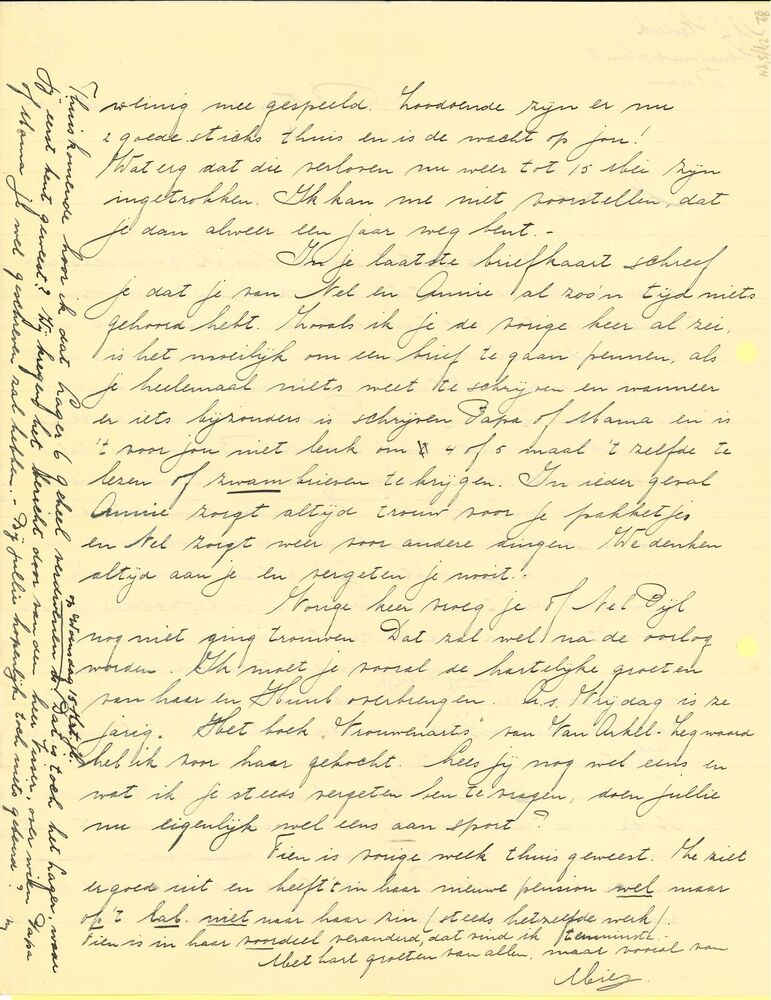 weinig mee gespeeld. Zoodoende zijn er nu
2 goede sticks thuis en is de wacht op jou!
Wat erg dat die verloven nu weer tot 15 Mei zijn
ingetrokken. Ik kan me niet voorstellen, dat
je dan alweer een jaar weg bent. -
In je laatste briefkaart schreef
je dat je van Nel en Annie al zoo'n tijd niets
gehoord hebt. Zooals ik je de vorige keer al zei,
is het moeilijk om een brief te gaan pennen, als
je heelemaal niets weet te schrijven en wanneer
er iets bijzonders is schrijven Papa of Mama en is
't voor jou niet leuk om 4 of 5 maal 't zelfde te
lezen of zwambrieven te krijgen. In ieder geval
Annie zorgt altijd trouw voor je pakketjes
en Nel zorgt weer voor andere dingen. We denken
altijd aan je en vergeten je nooit. -
Vorige keer vroeg je of Nel Pijl
nog niet ging trouwen. Dat zal wel na de oorlog
worden. Ik moet je vooral de hartelijke groeten
van haar en Huub overbrengen. A.s. Vrijdag is ze
jarig. Het boek "Vrouwenarts" van Van Arkel-Legwaard
heb ik voor haar gekocht. Lees jij nog wel eens en
wat ik je steeds vergeten ben te vragen, doen jullie
nu eigenlijk wel eens aan sport?
Tien is vorige week thuis geweest. Ze ziet
er goed uit en heeft 't in haar nieuwe pension wel maar
op 't lab. niet naar haar zin (steeds hetzelfde werk).
Tien is in haar voordeel veranderd, dat vind ik tenminste.
Met hart groeten van allen, maar vooral van
Miez.
Thuiskomende hoor ik dat Lager 6 geheel verdwenen is. Dat is toch het Lager, waar
op Woensdag 15 Mrt j.l.
jij eerst bent geweest? Wij kregen het bericht door van den heer Visser, over wien Papa
of Mama je wel geschreven zal hebben. - Bij jullie hopenlijk toch niets gebeurd?